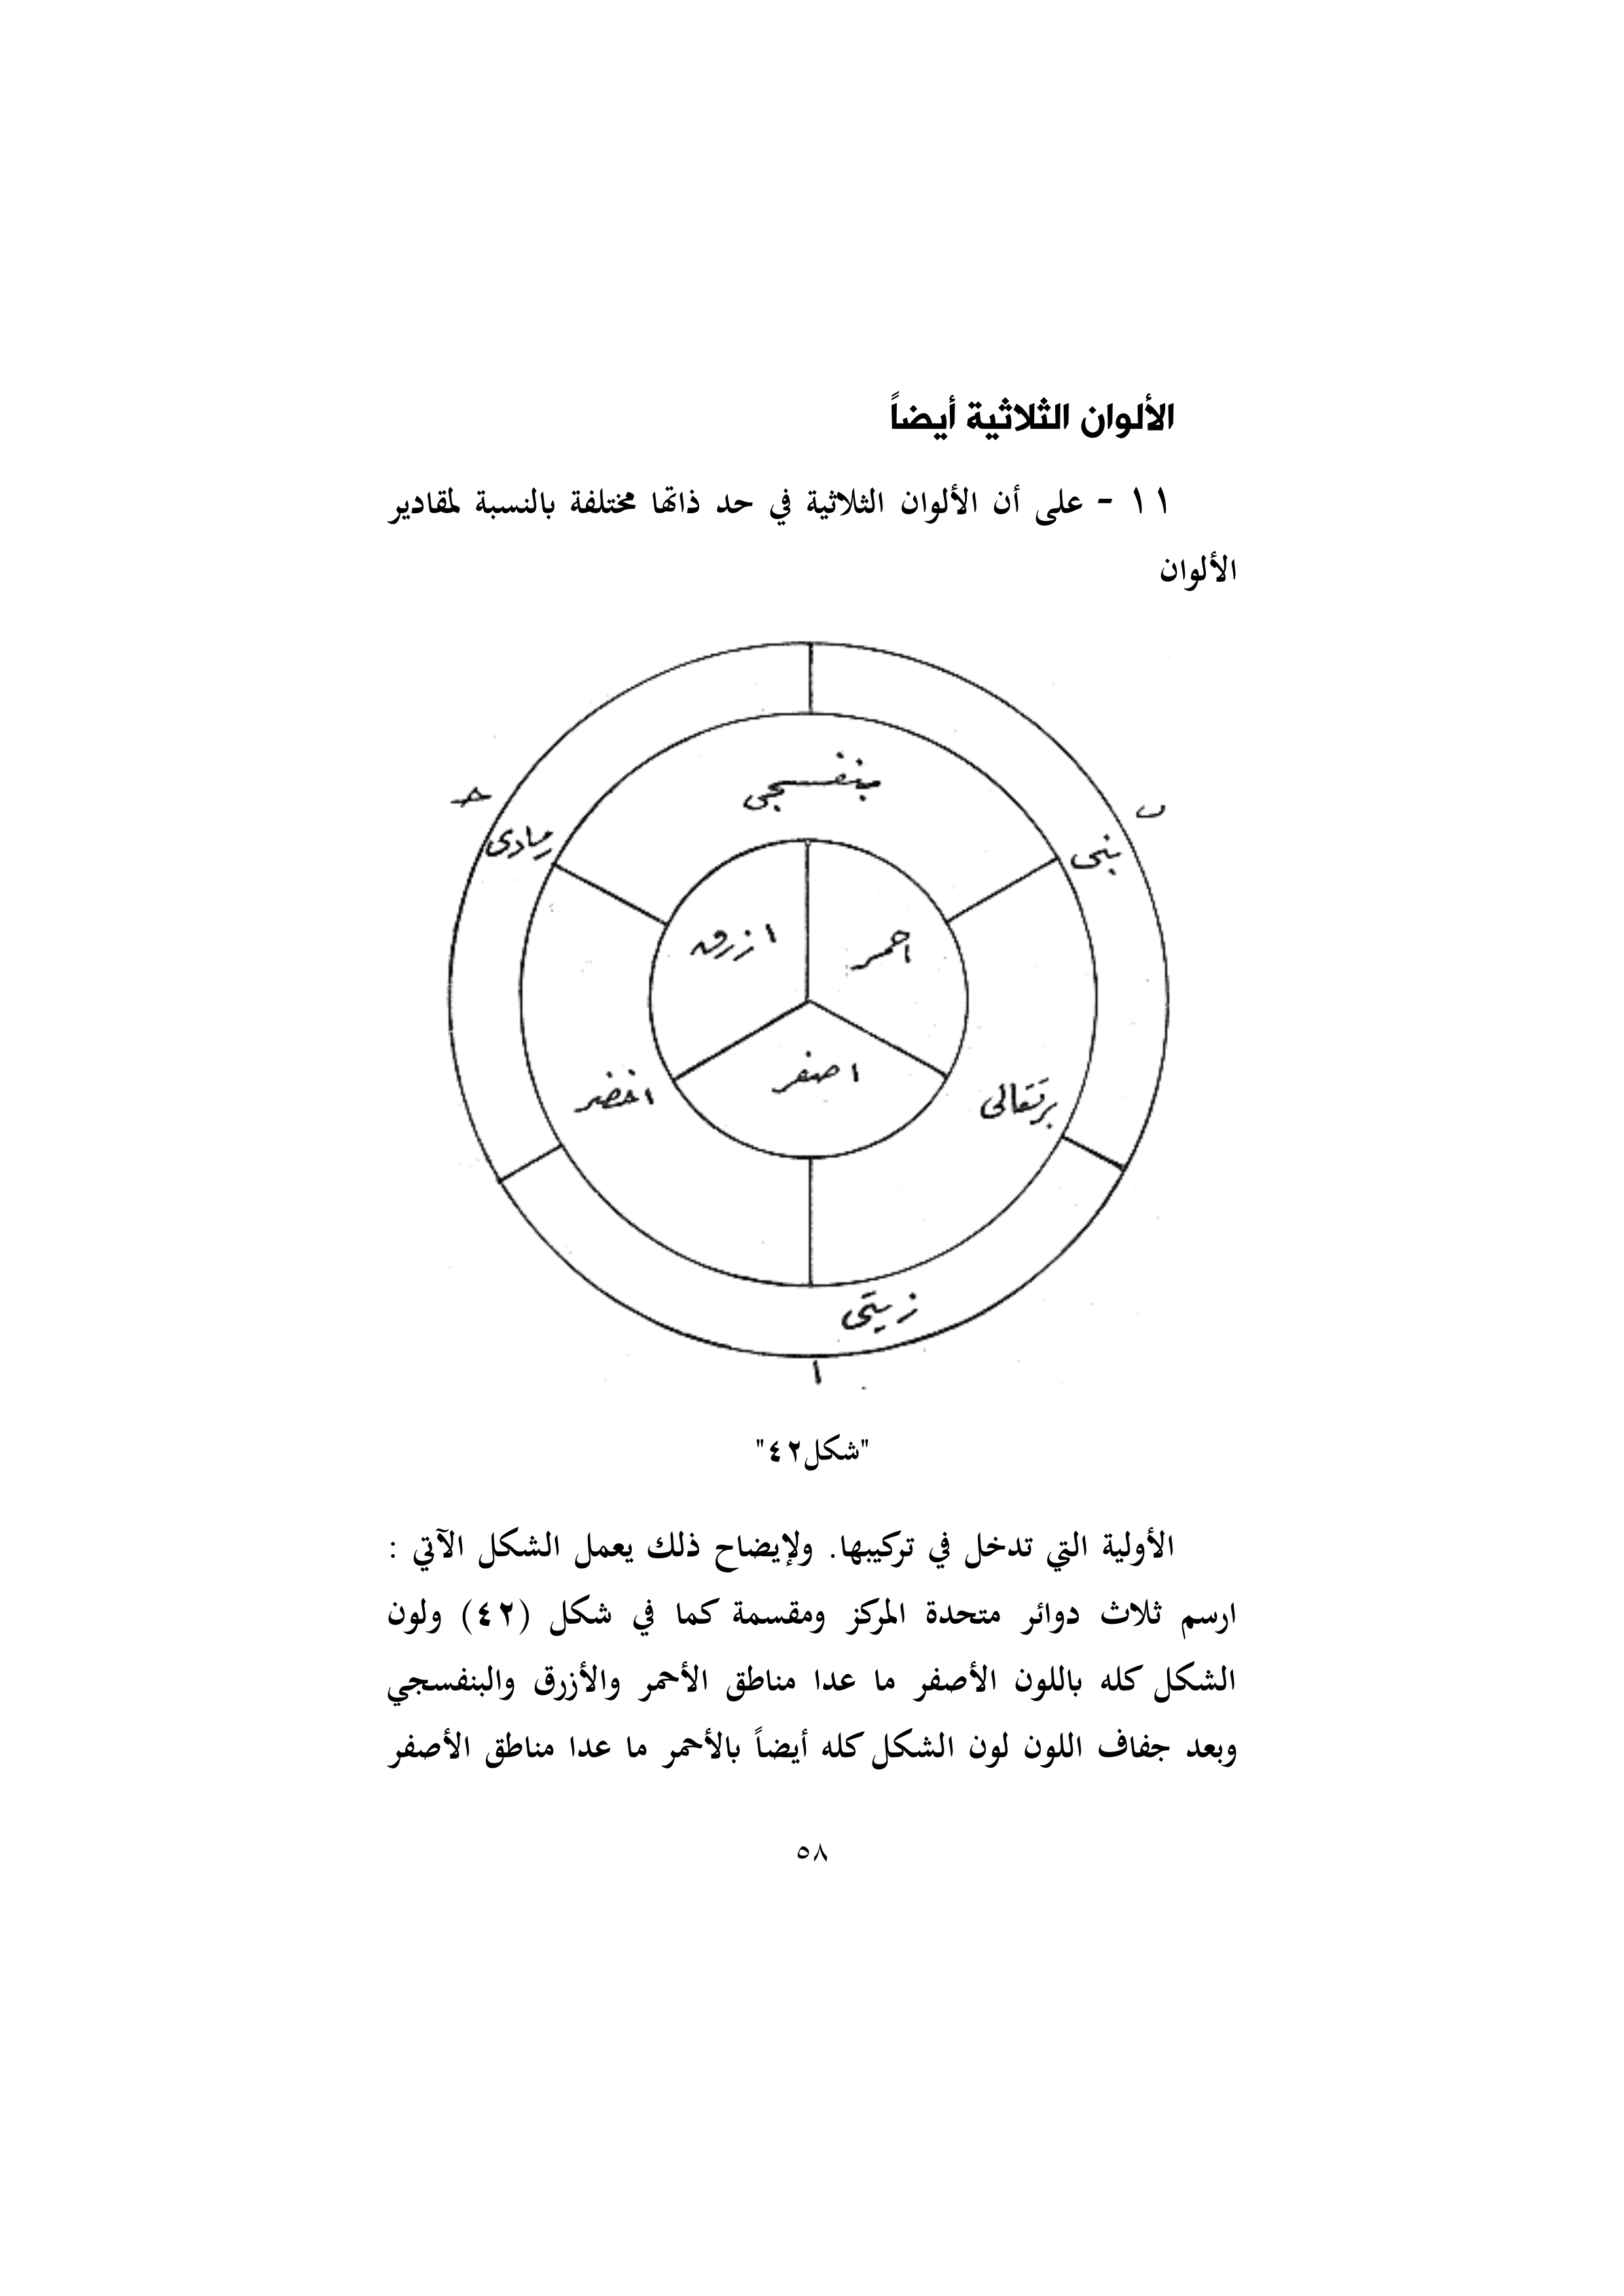 الألوان الثلاثية أيضاً
١١ - على أن الألوان الثلاثية في حد ذاتها مختلفة بالنسبة لمقادير
الألوان
بنفسجى
حـ
ب
رمادى
بنى
ازرق
احمر
اصفر
اخضر
برتقالى
زيتى
ا
"شكل٤٢"
الأولية التي تدخل في تركيبها. ولإيضاح ذلك يعمل الشكل الآتي :
ارسم ثلاث دوائر متحدة المركز ومقسمة كما في شكل (٤٢) ولون
الشكل كله باللون الأصفر ما عدا مناطق الأحمر والأزرق والبنفسجي
وبعد جفاف اللون لون الشكل كله أيضاً بالأحمر ما عدا مناطق الأصفر
٥٨